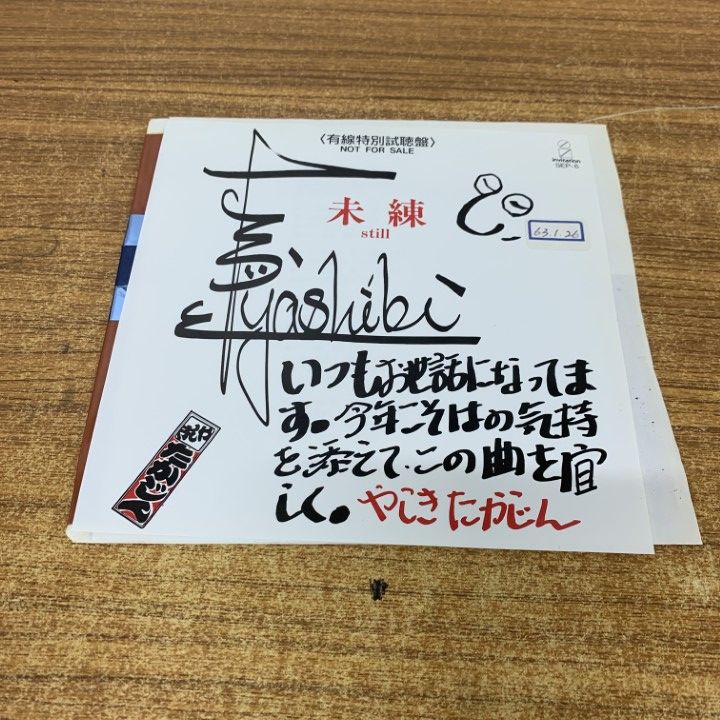 〈有線特別試聴盤〉
NOT FOR SALE
invitation
SEP-6
未練
still
63.1.26
yashiki
いつもお世話になってま
す。今年こそはの気持
を添えて、この曲を宜
しく。やしきたかじん
たかじん